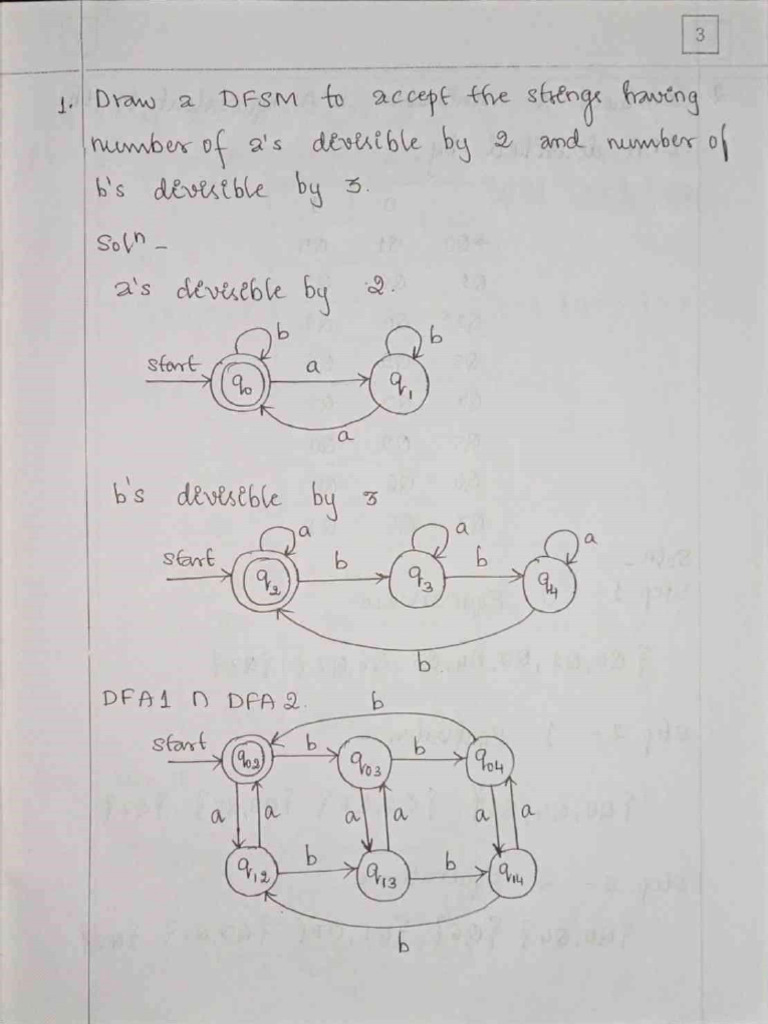 3
1. Draw a DFSM to accept the strings having
number of a's devisible by 2 and number of
b's devisible by 3.
Solⁿ -
a's devisible by 2.
b b
start q0 a q1
a
b's devisible by 3
a a a
start q2 b q3 b q4
b
DFA1 ∩ DFA2.
b
start q02 b q03 b q04
a a a a a a
q12 b q13 b q14
b